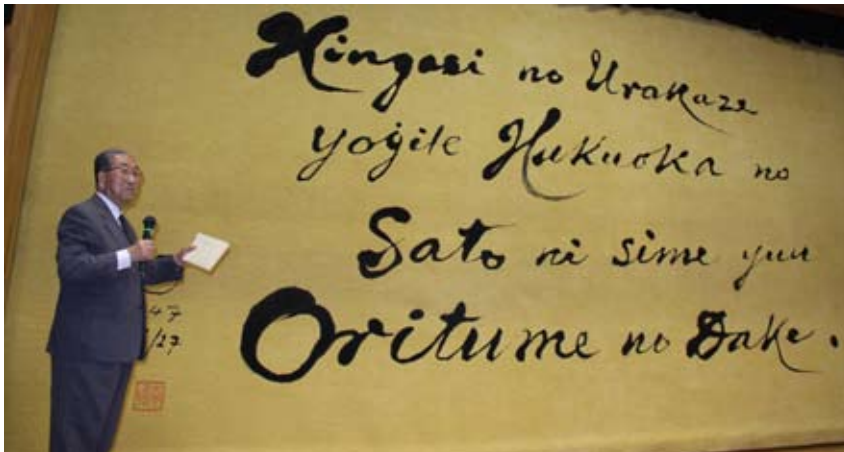 Hingasi no Urakaze
yoġite Hukuoka no
Sato ni sime yuu
Oritume no Dake.
47
/27